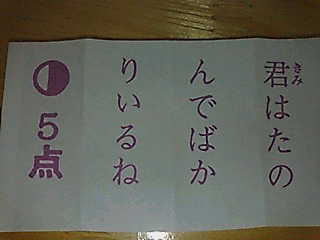 君はたの
きみ
んでばか
りいるね
◐5点